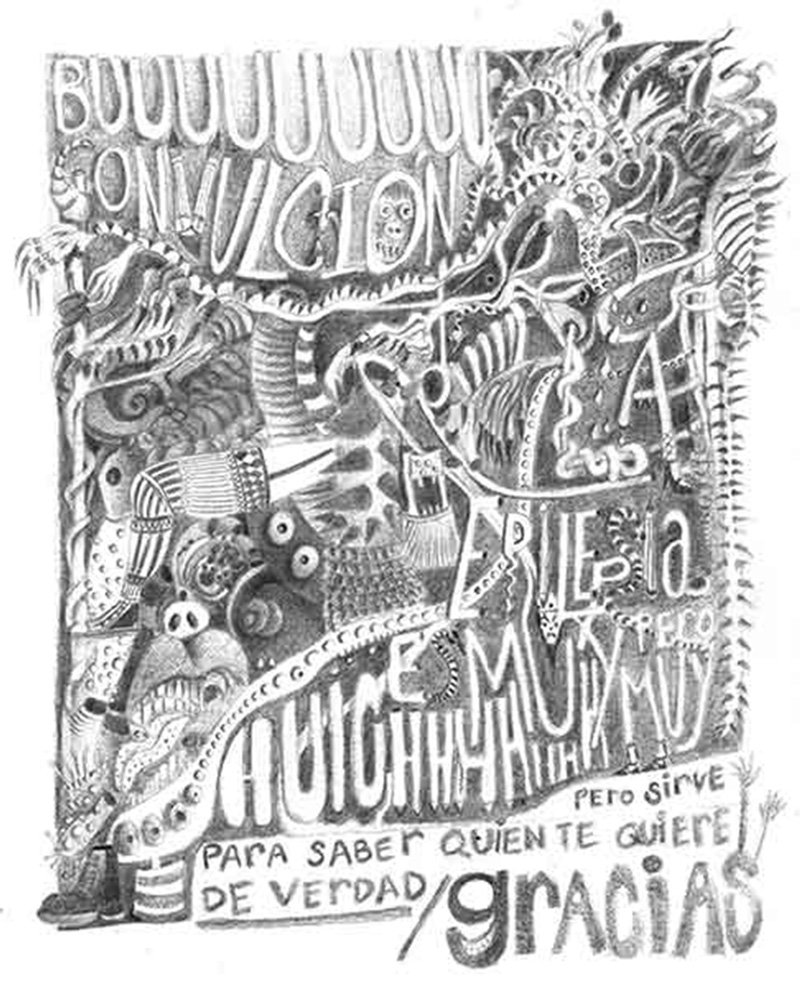 BUUUUUUUUU
CONVULCION
LA
EPILEPSIA
ES MUY PERO
MUY
HUICHHHHHHHH
PERO SIRVE
PARA SABER QUIEN TE QUIERE
DE VERDAD/gracias